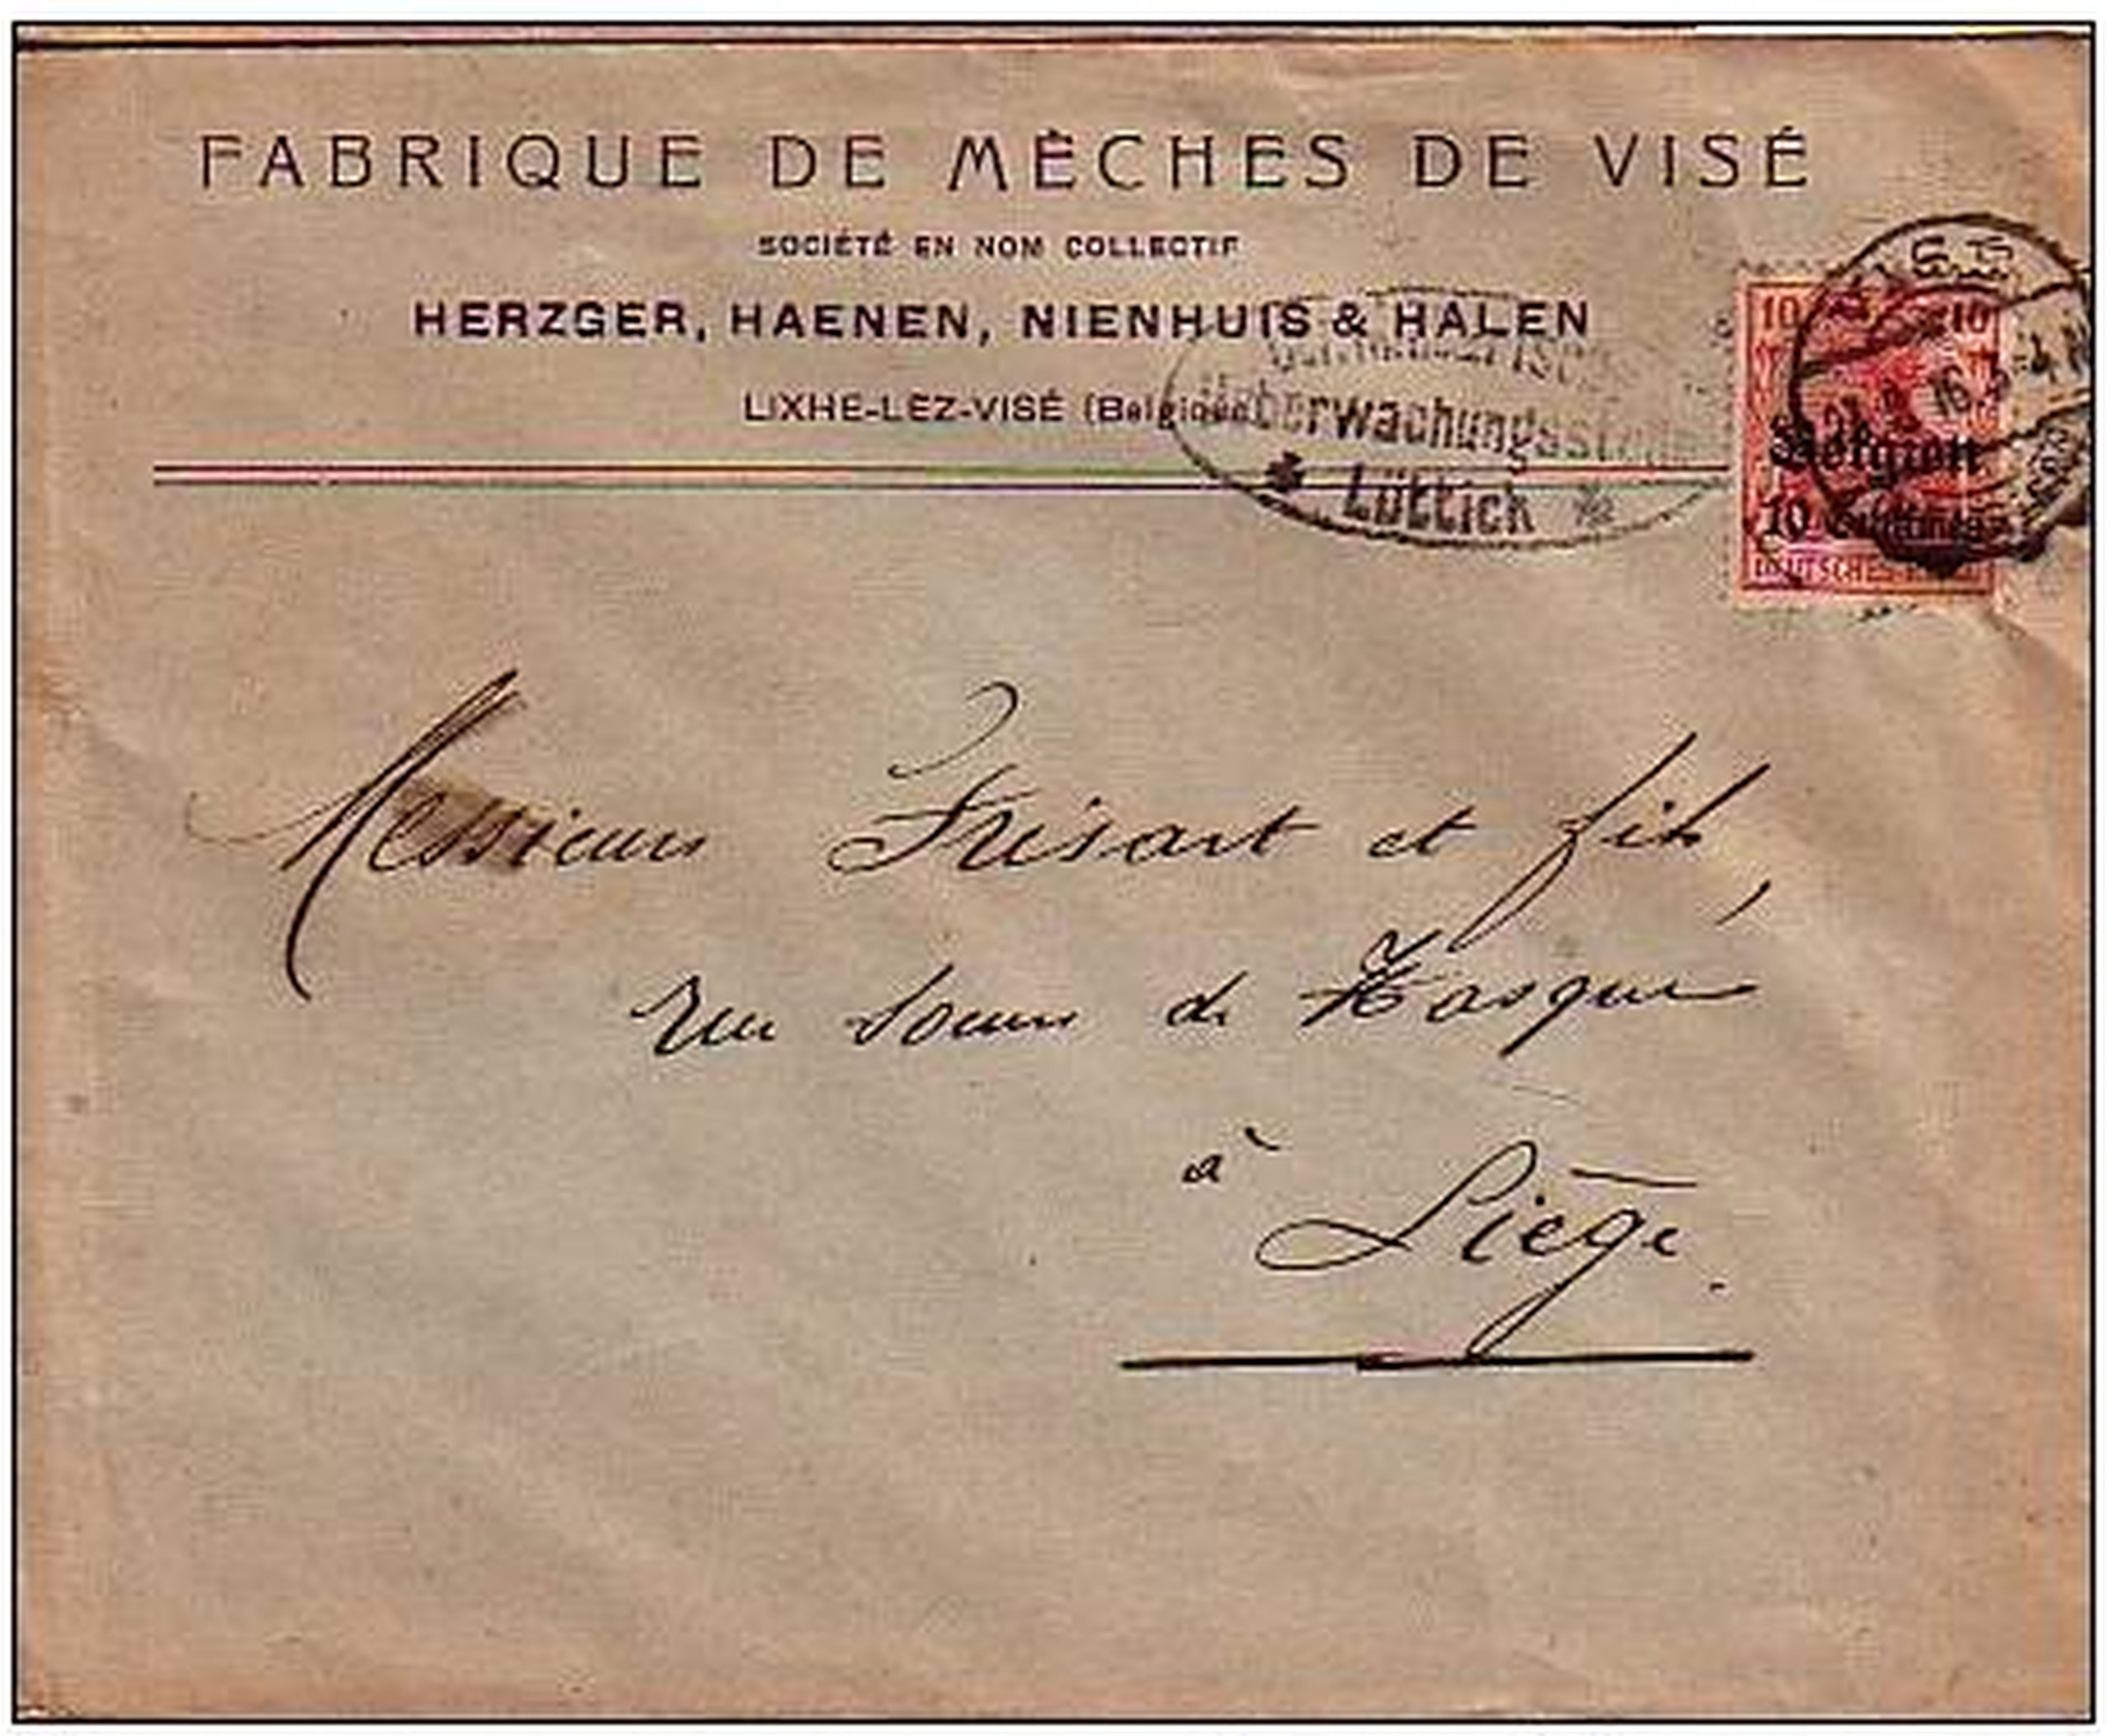 FABRIQUE DE MÈCHES DE VISÉ
SOCIÉTÉ EN NOM COLLECTIF
HERZGER, HAENEN, NIENHUIS & HALEN
LIXHE-LEZ-VISÉ (Belgique)
Ueberwachungsstelle
* Lüttich *
10 10
16.
Belgien
10 Centimes
DEUTSCHES REICH
Messieurs Frésart et fils,
Rue Soeurs de Hasque
à
Liège.